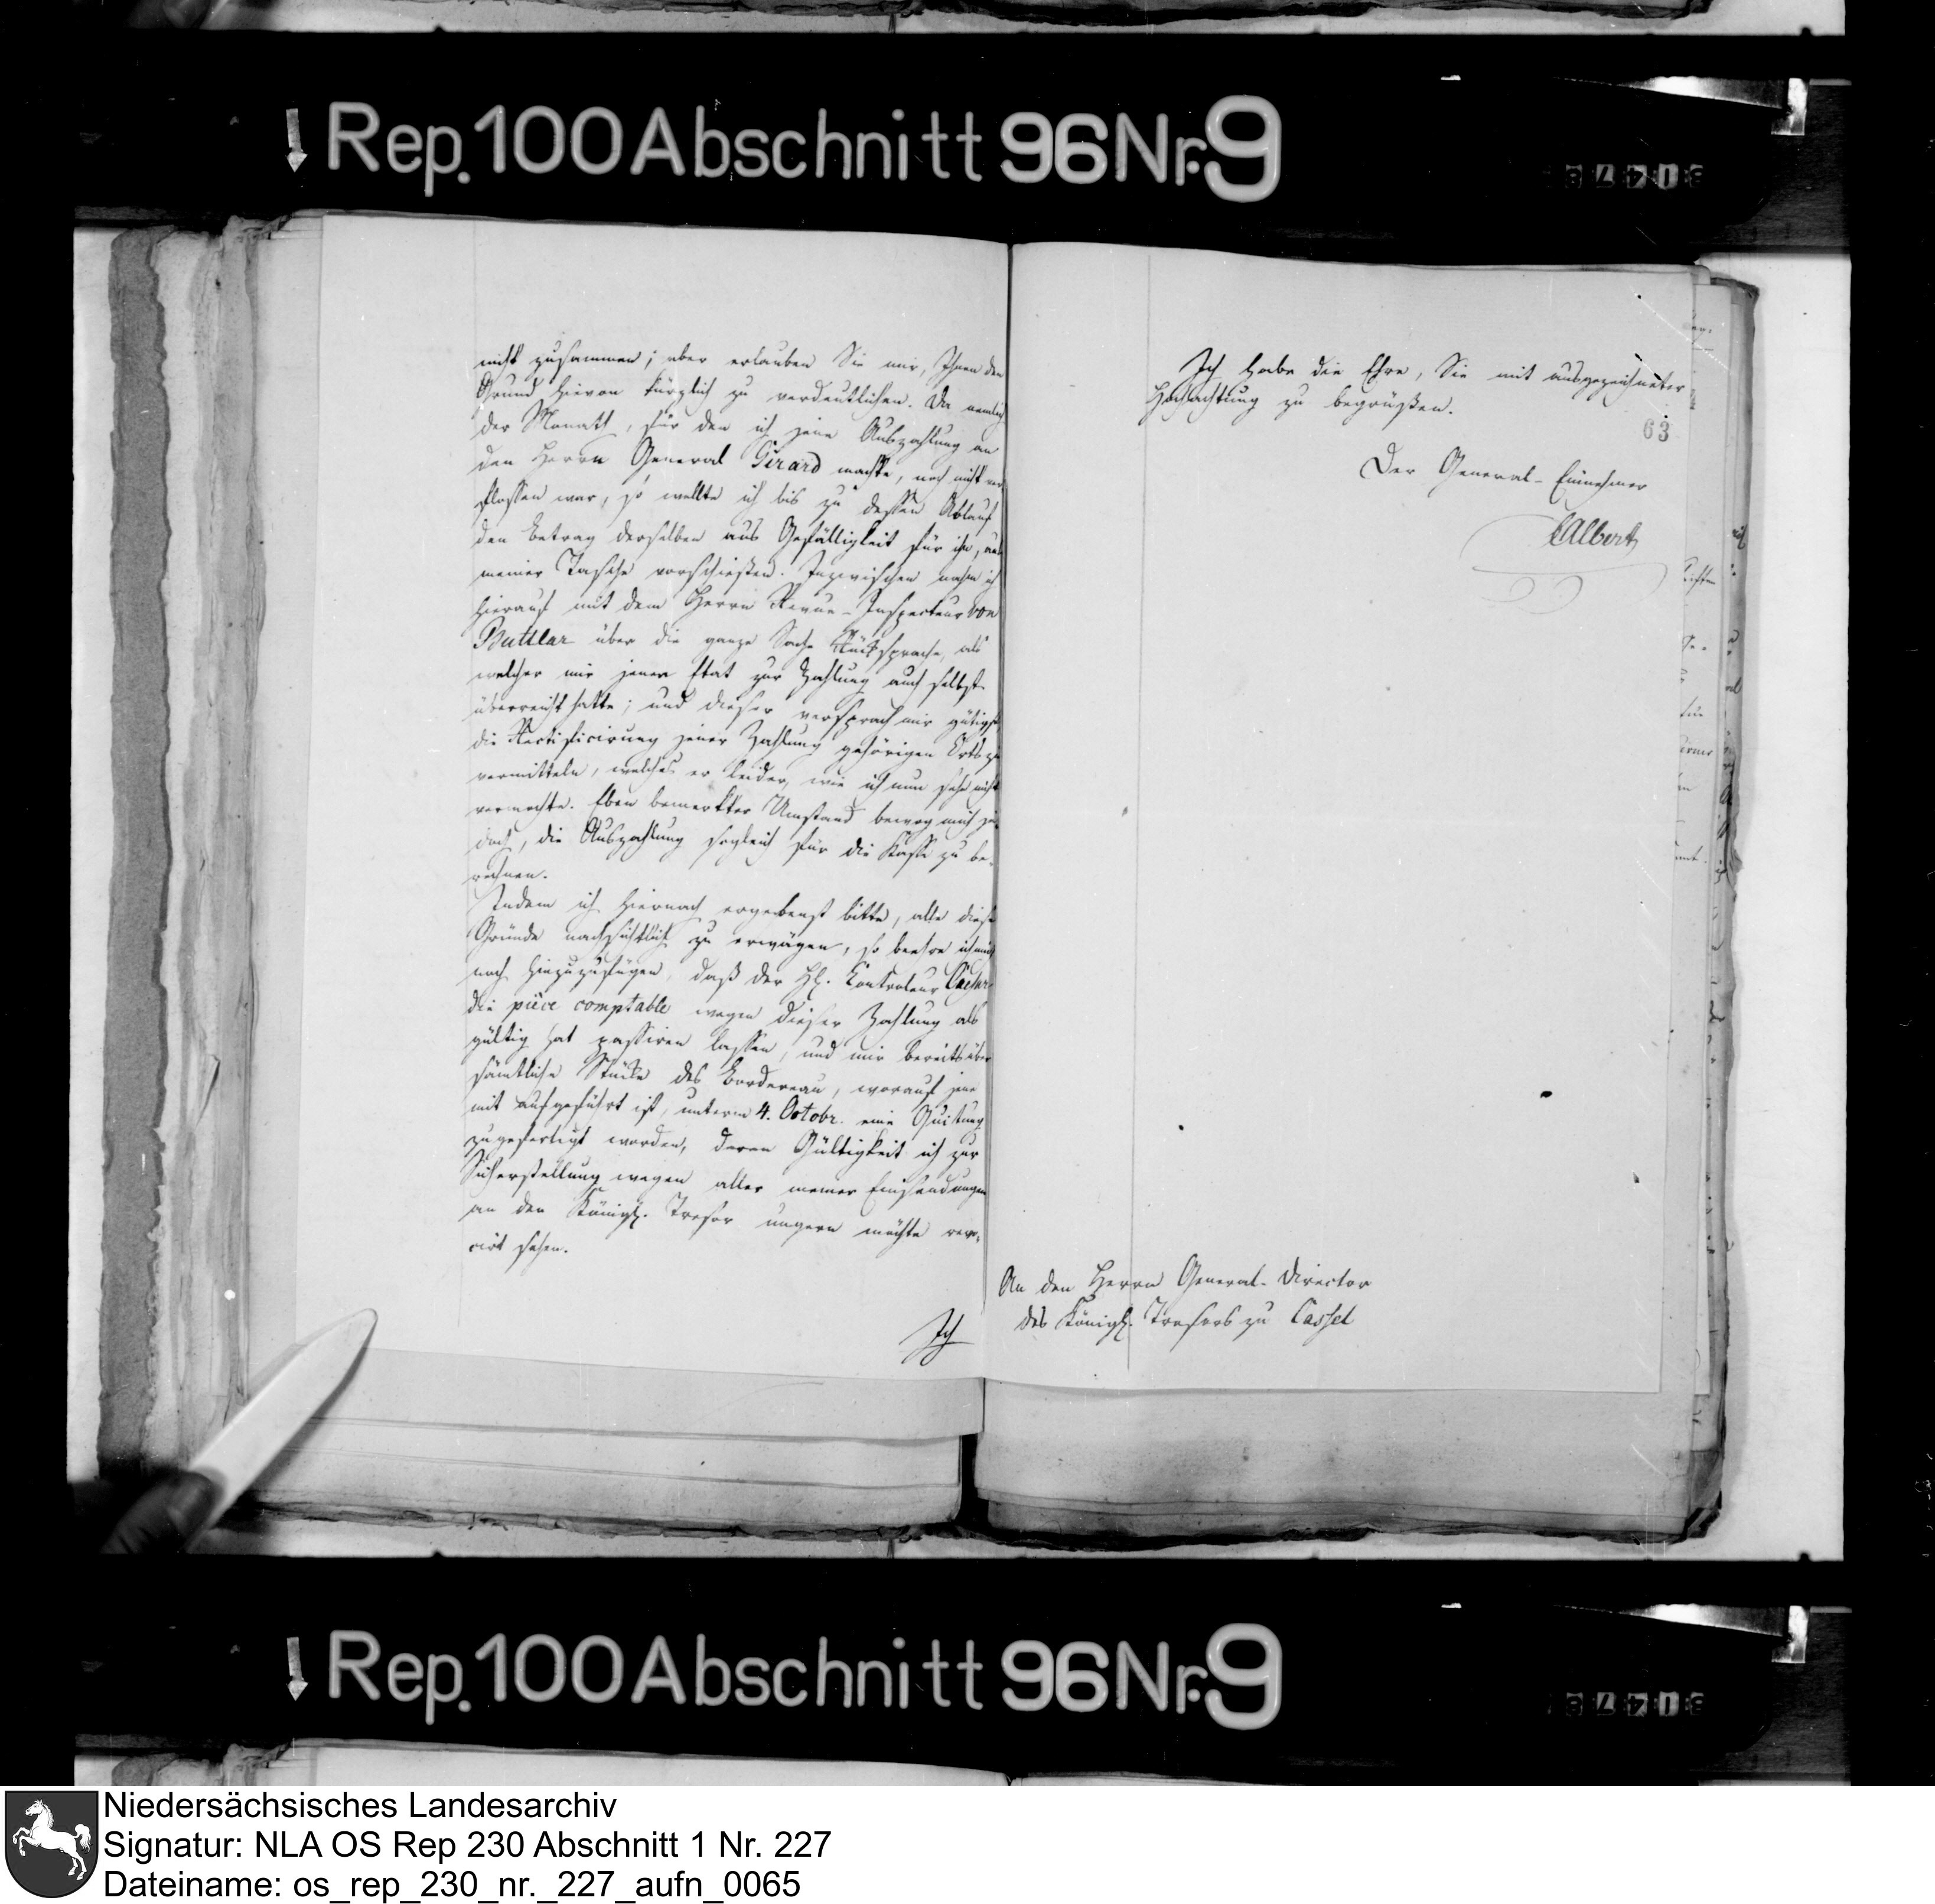 Rep. 100 Abschnitt 96 Nr. 9
nicht zusammen; aber erlauben Sie mir, Ihnen den
Grund hievon kürzlich zu verdeutlichen. Da nemlich
der Monath, für den ich jene Auszahlung an
den Herrn General Girard machte, noch nicht ver¬
flossen war, so wollte ich bis zu dessen Ablauf
den Betrag derselben aus Gefälligkeit für ihn, aus
meiner Tasche vorschießen. Inzwischen nahm ich
hierauf mit dem Herrn Revue-Inspecteur von
Buttlar über die ganze Sache Rücksprache, als
welcher mir jenen Etat zur Zahlung auch selbst
überreicht hatte; und dieser versprach mir gütigst
die Rectificirung jener Zahlung gehörigen Orts zu
vermitteln, welches er leider, wie ich nun sehe nicht
vermochte. Eben bemerkter Umstand bewog mich je¬
doch, die Auszahlung sogleich für die Kasse zu be¬
rechnen.
Indem ich hiernach ergebenst bitte, alle diese
Gründe nachsichtlich zu erwägen, so beehre ich mich
noch hinzuzufügen, daß der H. Controleur
die pièce comptable wegen dieser Zahlung als
gültig hat passiren lassen, und mir bereits über
sämtliche Stücke des Bordereau, worauf jene
mit aufgeführt ist, unterm 4. Octobr. eine Quitung
zugefertigt worden, deren Gültigkeit ich zur
Sicherstellung wegen aller meiner Einsendungen
an den Königl. Tresor ungern möchte revo¬
cirt sehen.
Ich
Ich habe die Ehre, Sie mit ausgezeichneter
Hochachtung zu begrüßen.
63
Der General-Einnehmer
Albert
An den Herrn General-Director
des Königl. Tresors zu Cassel
Rep. 100 Abschnitt 96 Nr. 9
Niedersächsisches Landesarchiv
Signatur: NLA OS Rep 230 Abschnitt 1 Nr. 227
Dateiname: os_rep_230_nr._227_aufn_0065